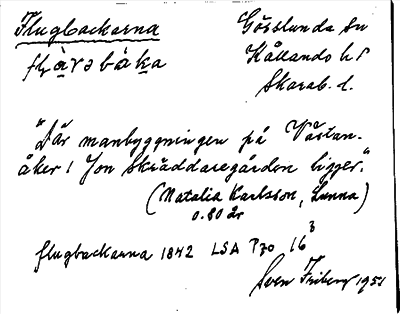 Flugbackarna Görslunda sn
Kållands hd
Skarab. l.
"Där manbyggningen på Västan-
åker i Jon Skräddaregården ligger."
(Natalia Karlsson, Lunna)
o. 80 år
flugbackarna 1842 LSA P70 16³
Sven Friberg 1951